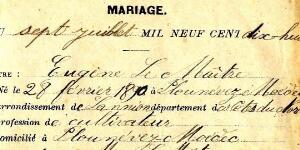 MARIAGE.
sept juillet MIL NEUF CENT dix-hu
TRE : Eugène Le Maître
Né le 28 février 18 à Plounévez Moëdec
arrondissement de Lannion département
profession de cultivateur
domicilié à Plounévez Moëdec